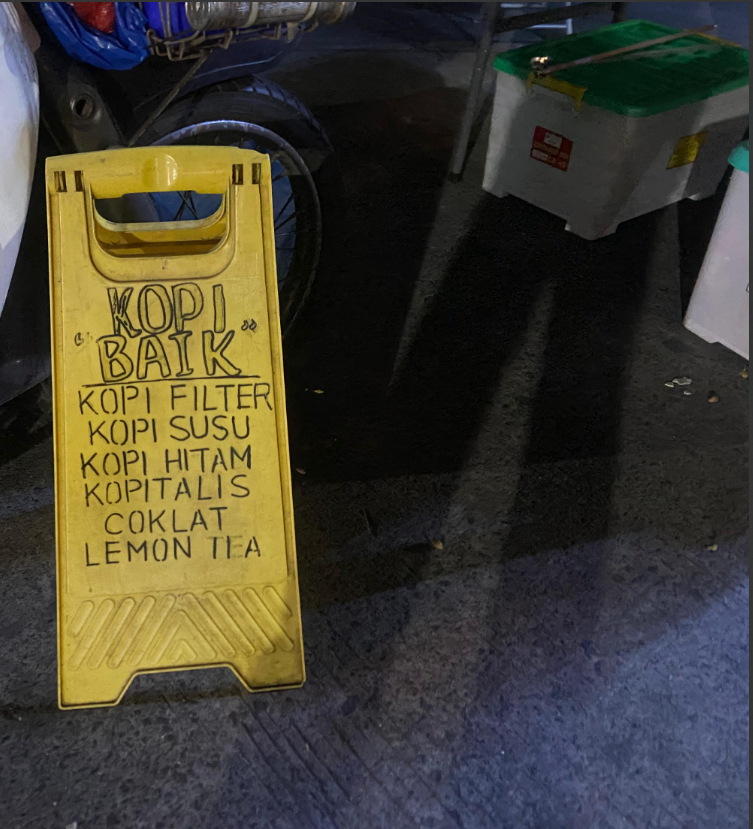 KOPI
"BAIK"
KOPI FILTER
KOPI SUSU
KOPI HITAM
KOPITALIS
COKLAT
LEMON TEA